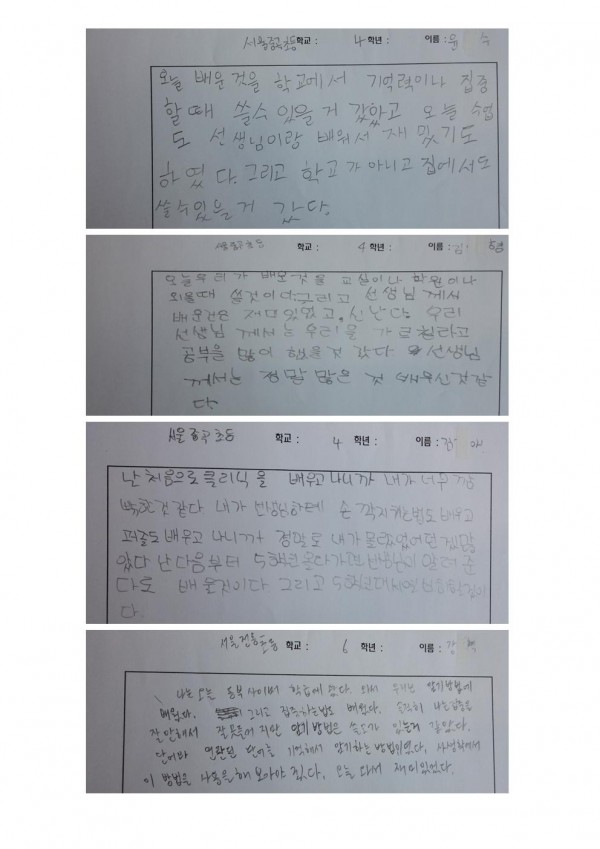 서울중곡초등학교 : 4 학년 : 이름 : 윤 수
오늘 배운것을 학교에서 기억력이나 집중
할때 쓸수 있을거 같았고 오늘 수업
도 선생님이랑 배워서 재밌기도
하였다. 그리고 학교가 아니고 집에서도
쓸수있을거 같다.
서울중곡초등 학교 : 4 학년 : 이름 : 김
오늘우리가 배운것을 교실이나 학원이나
외울때 쓸것이다. 그리고 선생님께서
배운것은 재미있었고, 신난다. 우리
선생님께서는 우리를 가르칠라고
공부을 많이 했을것 같다 선생님
께서는 정말 많은 것 배우신것같
다.
서울중곡초등 학교 : 4 학년 : 이름 :
난 처음으로 클리닉을 배우고 나니까 내가 너무
것같다 내가 선생님한테 손 깍지 하는법도 배우고
퍼즐도 배우고 나니까 정말로 내가
있다 난 다음부터 5학년 온다가면
다도 배울것이다 그리고
다.
서울전동초등 학교 : 6 학년 : 이름 : 강
나는 오늘 동부 사이버 학습에 왔다. 와서 우리는 암기방법에
배웠다. 그리고 집중하는법도 배웠다. 솔직히 나는 집중은
잘 안해서 잘 못들어지만 암기방법은 쓸모가 있는거 같았다.
단어와 연관된 단어를 기억해서 암기하는 방법이였다.
이 방법을 사용을 해 보아야 겠다. 오늘 와서 재미있었다.